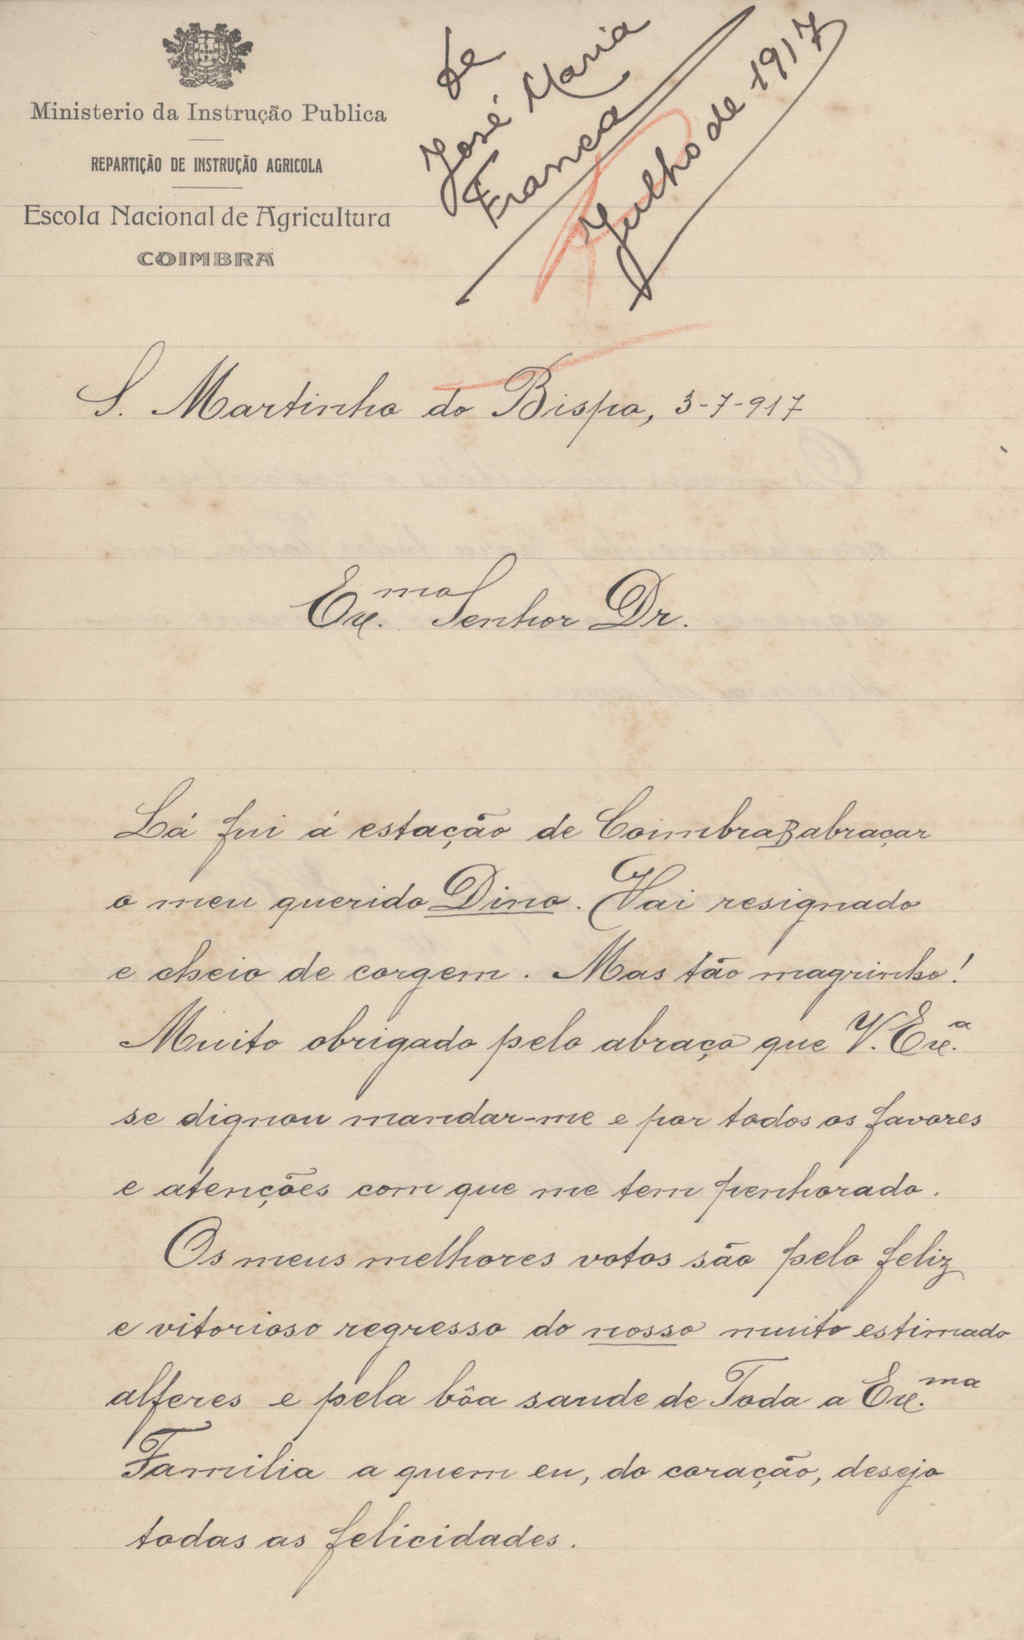 Ministerio da Instrução Publica
REPARTIÇÃO DE INSTRUÇÃO AGRICOLA
Escola Nacional de Agricultura
COIMBRA
de
José Maria
Franca
Julho de 1917
S. Martinho do Bispo, 3-7-917
Ex.mo Senhor Dr.
Lá fui á estação de Coimbra B abraçar
o meu querido Dino. Vai resignado
e cheio de corgem. Mas tão magrinho!
Muito obrigado pelo abraço que V. Ex.a
se dignou mandar-me e por todos os favores
e atenções com que me tem penhorado.
Os meus melhores votos são pelo feliz
e vitorioso regresso do nosso muito estimado
alferes e pela bôa saude de Toda a Ex.ma
Familia a quem eu, do coração, desejo
todas as felicidades.